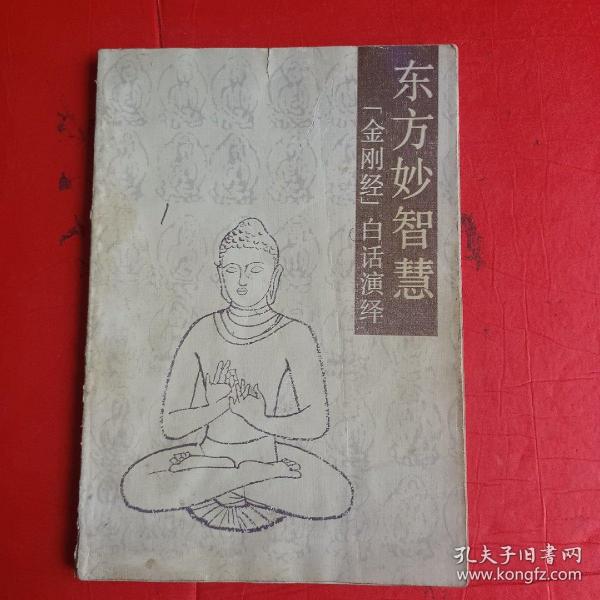 东方妙智慧
「金刚经」白话演绎
孔夫子旧书网
www.kongfz.com